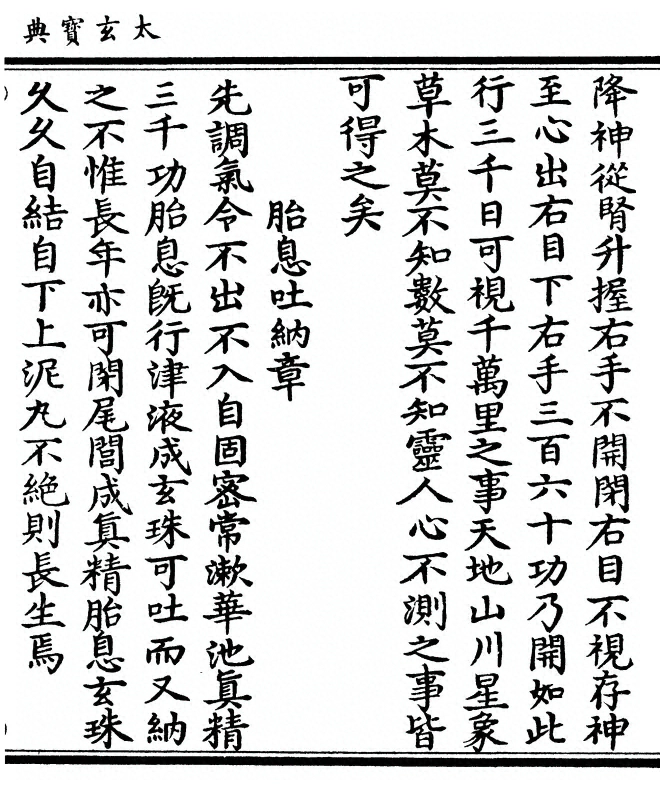 太玄寶典
降神從腎升握右手不開閉右目不視存神
至心出右目下右手三百六十功乃開如此
行三千日可視千萬里之事天地山川星象
草木莫不知數莫不知靈人心不測之事皆
可得之矣
胎息吐納章
先調氣令不出不入自固密常漱華池眞精
三千功胎息既行津液成玄珠可吐而又納
之不惟長年亦可閉尾閭成眞精胎息玄珠
久久自結自下上泥丸不絶則長生焉